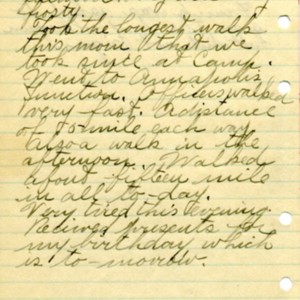 party.
Took the longest walk
this morn that we
took since at Camp.
Went to Annapolis
Junction. Officers walked
very fast. A distance
of 5 mile each way
Also a walk in the
afternoon. Walked
about fifteen mile
in all to-day.
Very tired this evening.
Recived presents for
my birthday which
is to-morrow.